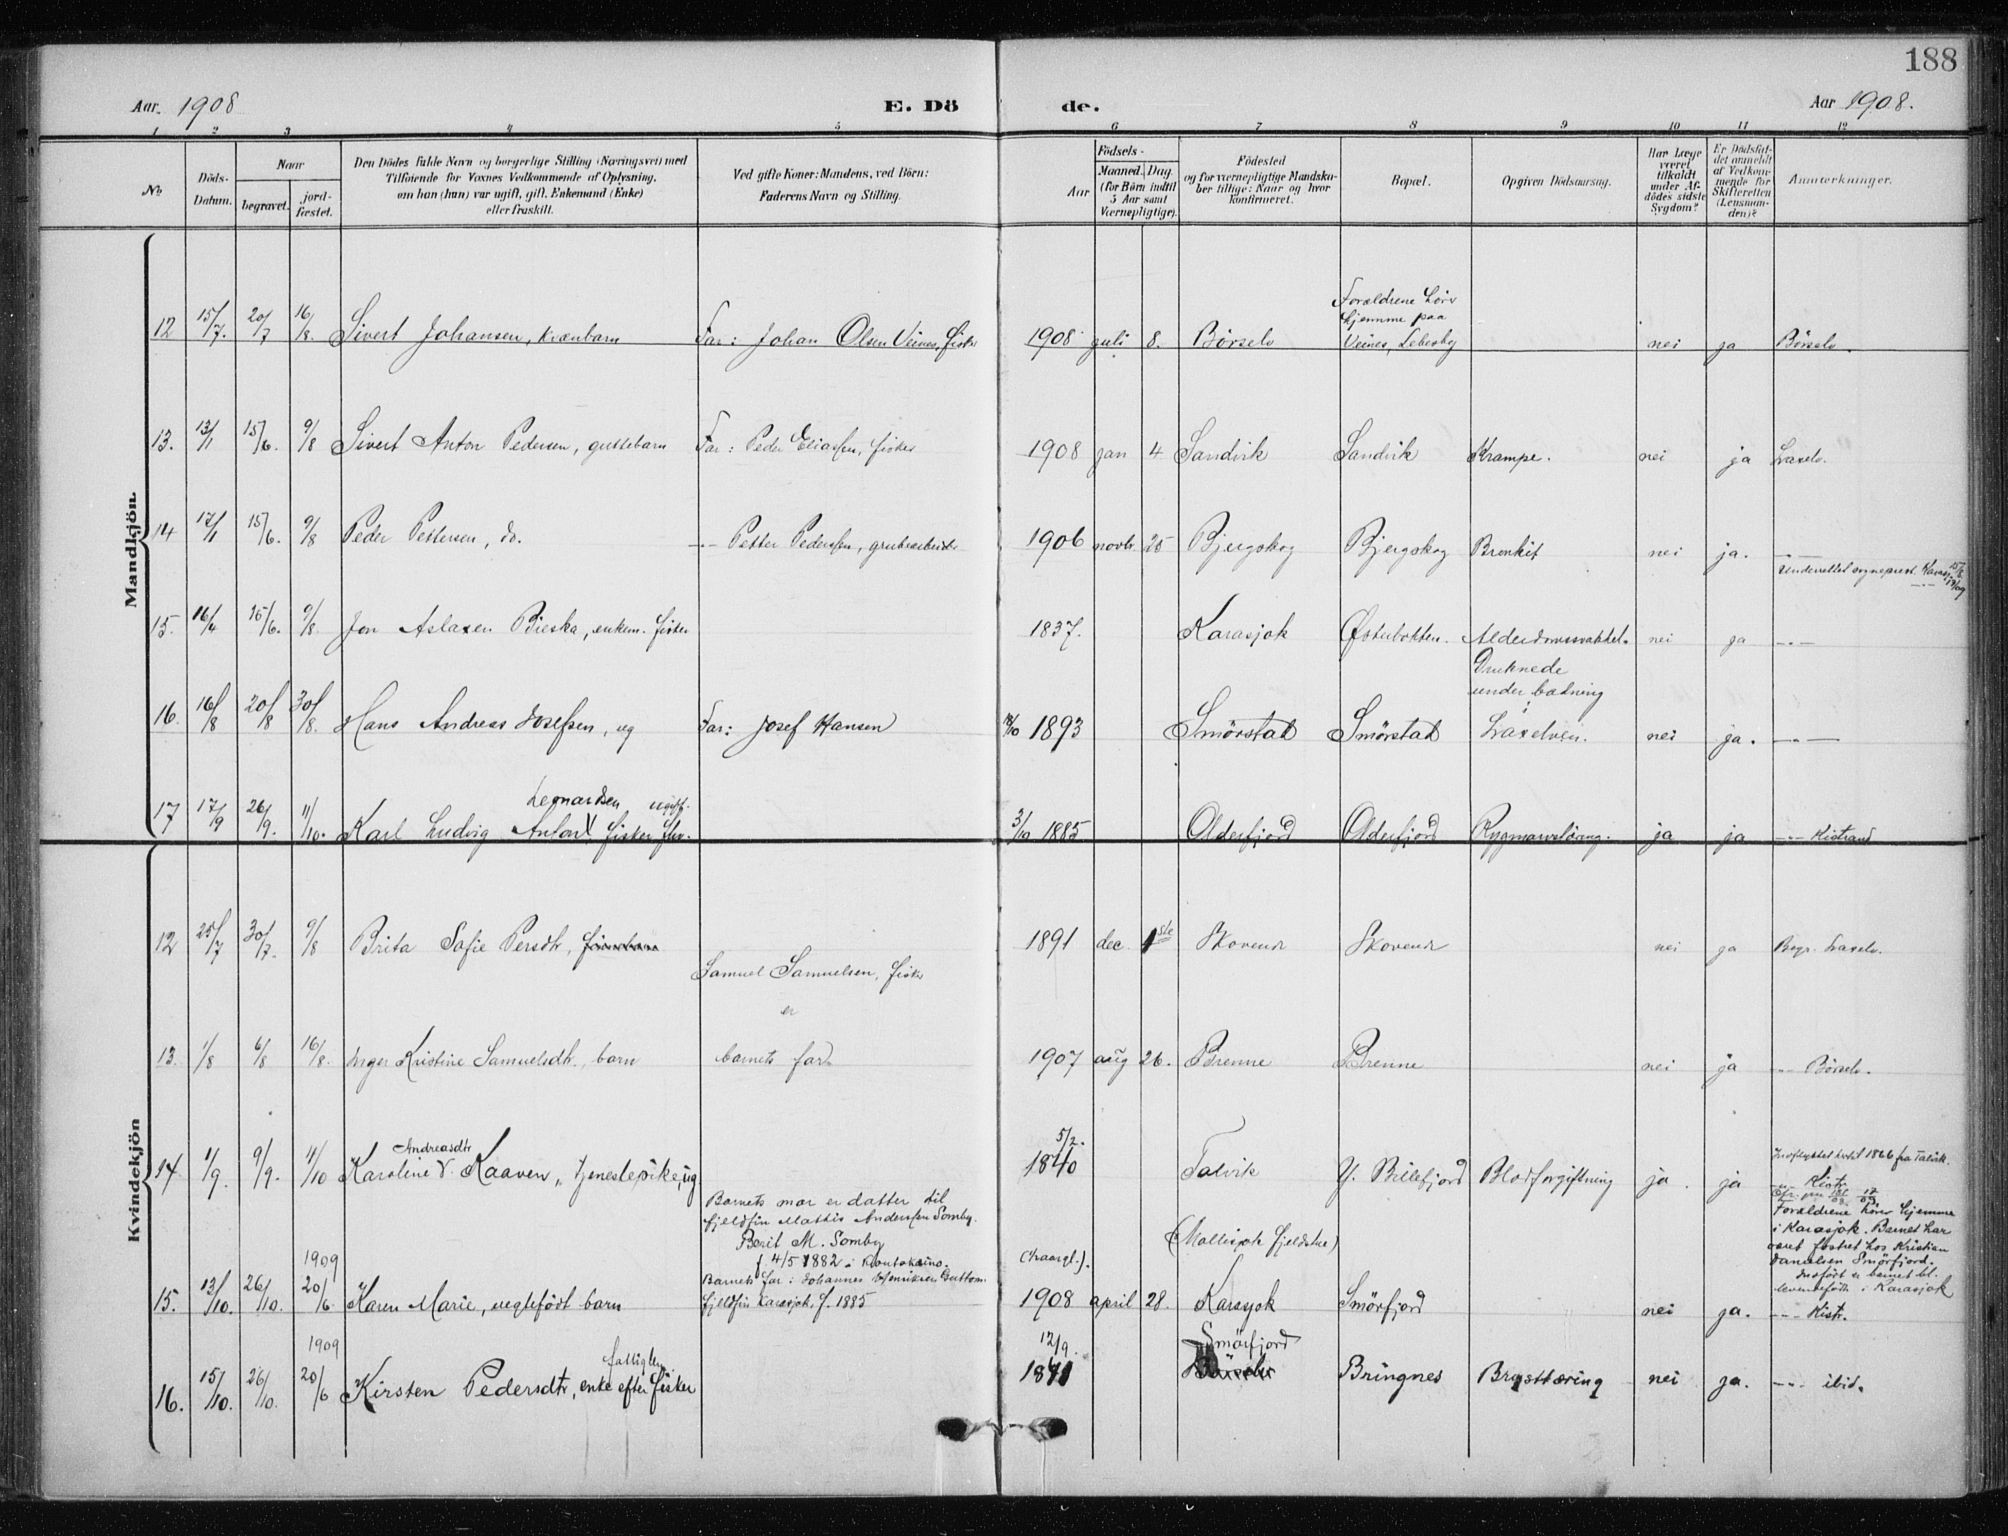 188
Aar. 1908 E. Dö de. Aar 1908.
1 2 3 4 5 6 7 8 9 10 11 12
No Döds-Datum. Naar begravet. jord-fæstet. Den Dödes fulde Navn og borgerlige Stilling (Næringsvei) med Tilföiende for Voxnes Vedkommende af Oplysning, om han (hun) var ugift, gift, Enkemand (Enke) eller fraskilt. Ved gifte Koner: Mandens, ved Börn: Faderens Navn og Stilling.
Aar Födsels- Maaned. Dag. (for Börn indtil 5 Aar samt Værnepligtige). Födested og for værnepligtige Mandskaber tillige: Naar og hvor konfirmeret. Bopæl. Opgiven Dödsaarsag. Har Læge været tilkaldt under Afdödes sidste Sygdom? Er Dödsfaldet anmeldt af Vedkommende for Skifteretten (Lensmanden)? Anmærkninger.
Mandkjön.
12 15/7. 20/7 16/8. Sivert Johansen, kvænbarn Far: Johan Olsen Veines, fisker 1908 juli 8. Börselv Forældrene hører hjemme paa Veines, Lebesby nei ja Börselv.
13. 13/1 15/6. 9/8 Sivert Anton Pedersen, guttebarn Far: Peder Eliassen, fisker 1908 jan 4 Sandvik Sandvik Krampe. nei ja Laxelv.
14 17/1 15/6. 9/8 Peder Pettersen, do. -"- Petter Pederssen, grubearbeider 1906 novbr. 25 Bjergskog Bjergskog Bronkit nei ja. -"-
Underrettet sogneprest. Karasj.
15. 16/4 15/6. 9/8. Jon Aslaxen Bieska, enkem. fisker 1837. Karasjok Østerbotten. Alderdomssvakhet. nei ja -"-
16. 16/8 20/8 30/8. Hans Andreas Josefsen, ug Far: Josef Hansen 18/10 1893 Smörstad Smörstad Druknede under badning i Laxelven. nei ja. -"-
17 17/9 26/9. 11/10. Karl Ludvig Anton Leonardsen ugift. fisker 3/10 1885 Olderfjord Olderfjord Rygmarvslidning. ja ja -"- Kistrand
Kvindekjön
12 25/7 30/7. 9/8 Brita Sofie Persdtr, 1891 dec. 1ste Skovenr Skovenr nei ja Begr. Laxelv.
13. 1/8 6/8 16/8. Inger Kristine Samuelsdtr., barn Samuel Samuelsen, fisker er barnets far. 1907 aug 26. Brenne Brenne nei ja -"- Börselv.
14 1/9. 9/9. 4/10 Karoline Andreasdtr Kaaven, tjenestepike, ug 5/2. 1840 Talvik Y. Billefjord Blodforgiftning ja. ja Indflyttet hertil 1866 fra Talvik.
-"- Kistr.
15. 13/10. 26/10. 1909 20/6. Karen Marie, uegtefödt barn
Barnets mor er datter til fjeldfin Mattis Anderssen Somby. Berit M. Somby f. 4/5 1882 i Koutokeino.
Barnets far: Johannes Henriksen Guttorm fjeldfin Karasjok, f. 1885
1908 april 28. (Mollisjok fjeldstue) Karasjok Smörfjord nei ja.
Forældrene hører hjemme i Karasjok. Barnet har været fostret hos Kristian Danielsen Smörfjord. Indfört er barnet bl. levendefödte i Karasjok
-"- Kistr.
16. 15/10. 26/10. 1909 20/6 Kirsten Pedersdtr, enke efter fisker fattiglem 12/9. 1841 Smörfjord Bringnes Brysttæring nei ja. -"- ibid.